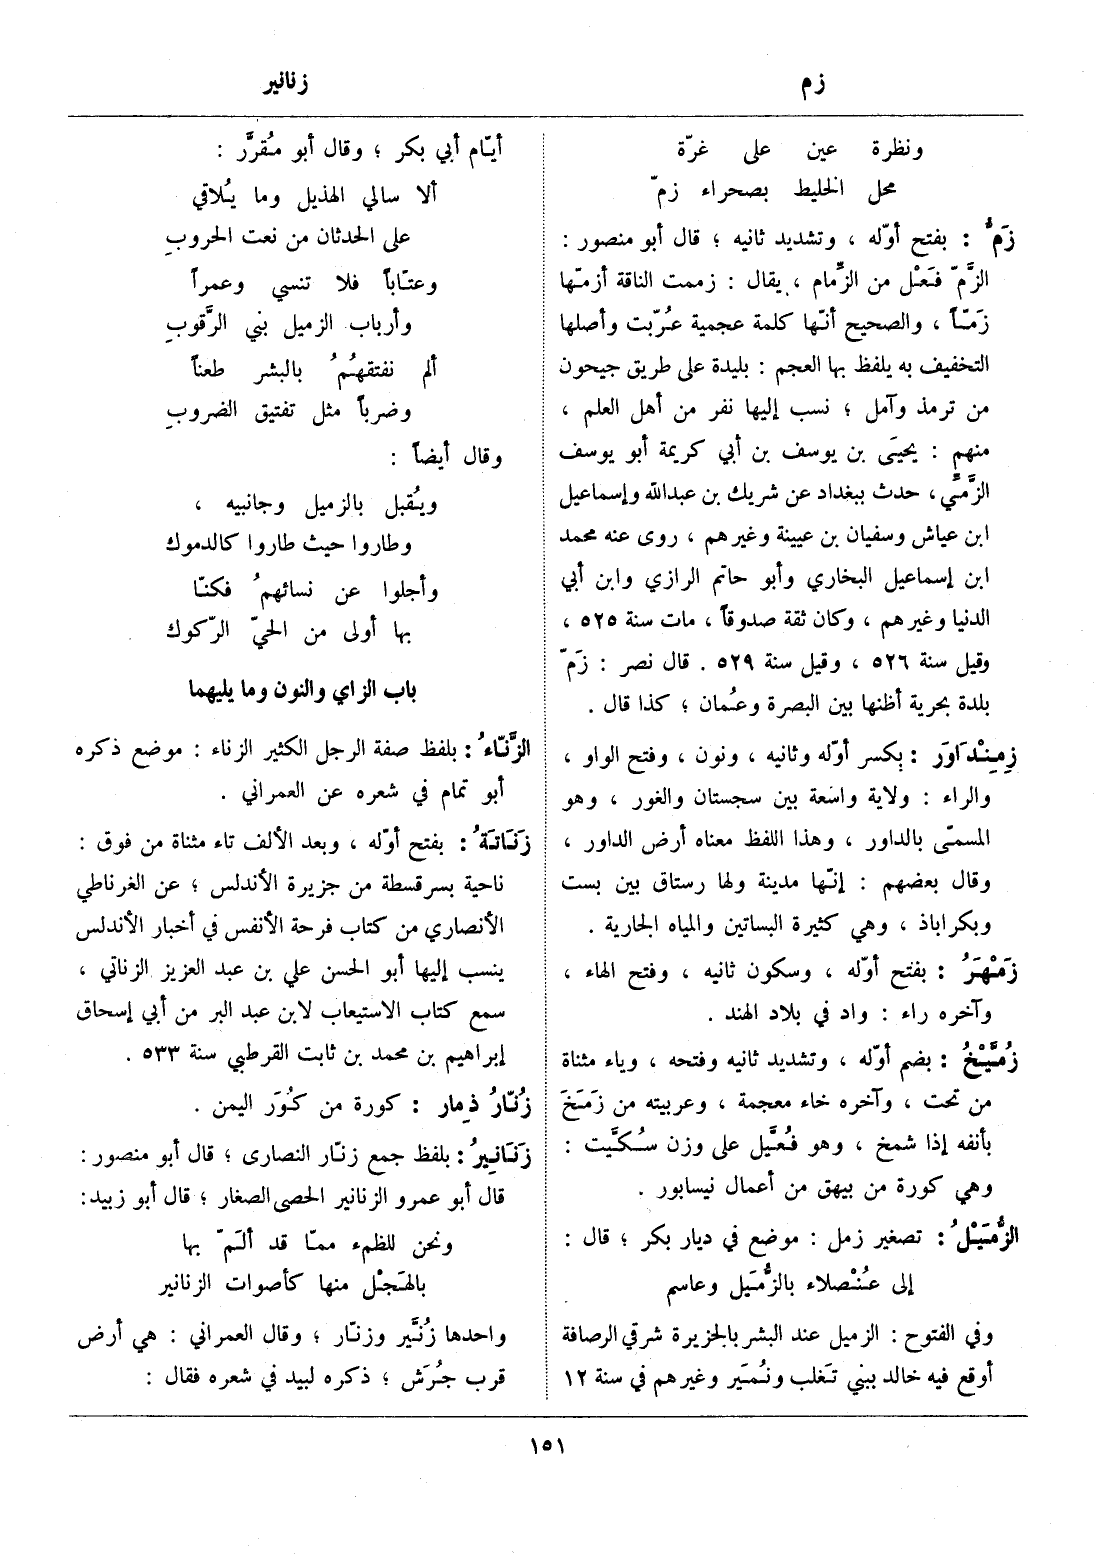 زم
زنانير
ونظرة عين على غرّة
محل الخليط بصحراء زمّ
زَمُّ : بفتح أوّله ، وتشديد ثانيه ؛ قال أبو منصور :
الزَّمّ فَعْل من الزِّمام ، يقال : زممت الناقة أزمّها
زَمّاً ، والصحيح أنّها كلمة عجمية عُرّبت وأصلها
التخفيف به يلفظ بها العجم : بليدة على طريق جيحون
من ترمذ وآمل ؛ نسب إليها نفر من أهل العلم ،
منهم : يحيَى بن يوسف بن أبي كريمة أبو يوسف
الزَّمّي ، حدث ببغداد عن شريك بن عبدالله وإسماعيل
ابن عياش وسفيان بن عيينة وغيرهم ، روى عنه محمد
ابن إسماعيل البخاري وأبو حاتم الرازي وابن أبي
الدنيا وغيرهم ، وكان ثقة صدوقاً ، مات سنة ٥٢٥ ،
وقيل سنة ٥٢٦ ، وقيل سنة ٥٢٩ . قال نصر : زَمّ
بلدة بحرية أظنها بين البصرة وعُمان ؛ كذا قال .
زِمِنْدَاوَر : بكسر أوّله وثانيه ، ونون ، وفتح الواو ،
والراء : ولاية واسعة بين سجستان والغور ، وهو
المسمّى بالداور ، وهذا اللفظ معناه أرض الداور ،
وقال بعضهم : إنّها مدينة ولها رستاق بين بست
وبكراباذ ، وهي كثيرة البساتين والمياه الجارية .
زَمْهَرُ : بفتح أوّله ، وسكون ثانيه ، وفتح الهاء ،
وآخره راء : واد في بلاد الهند .
زُمَّيْخُ : بضم أوّله ، وتشديد ثانيه وفتحه ، وياء مثناة
من تحت ، وآخره خاء معجمة ، وعربيته من زَمَخَ
بأنفه إذا شمخ ، وهو فُعَّيل على وزن سُكَّيت :
وهي كورة من بيهق من أعمال نيسابور .
الزُّمَيْلُ : تصغير زمل : موضع في ديار بكر ؛ قال :
إلى عُنْصلاء بالزُّمَيل وعاسم
وفي الفتوح : الزميل عند البشر بالجزيرة شرقي الرصافة
أوقع فيه خالد ببني تَغلب ونُمَير وغيرهم في سنة ١٢
أيّام أبي بكر ؛ وقال أبو مُقرَّر :
ألا سالي الهذيل وما يُلاقي
على الحدثان من نعت الحروبِ
وعتّاباً فلا تنسي وعمراً
وأرباب الزميل بني الرَّقوبِ
ألم نفتقهُمُ بالبشر طعناً
وضرباً مثل تفتيق الضروبِ
وقال أيضاً :
ويُقبل بالزميل وجانبيه ،
وطاروا حيث طاروا كالدموك
وأجلوا عن نسائهمُ فكنّا
بها أولى من الحيّ الرّكوك
باب الزاي والنون وما يليهما
الزَّنّاءُ : بلفظ صفة الرجل الكثير الزناء : موضع ذكره
أبو تمام في شعره عن العمراني .
زَنَاتَةُ : بفتح أوّله ، وبعد الألف تاء مثناة من فوق :
ناحية بسرقسطة من جزيرة الأندلس ؛ عن الغرناطي
الأنصاري من كتاب فرحة الأنفس في أخبار الأندلس
ينسب إليها أبو الحسن علي بن عبد العزيز الزناتي ،
سمع كتاب الاستيعاب لابن عبد البر من أبي إسحاق
إبراهيم بن محمد بن ثابت القرطبي سنة ٥٣٣ .
زُنّارُ ذمار : كورة من كُوَر اليمن .
زَنَانِيرُ : بلفظ جمع زنّار النصارى ؛ قال أبو منصور :
قال أبو عمرو الزنانير الحصى الصغار ؛ قال أبو زبيد :
ونحن للظمء ممّا قد ألَمّ بها
بالهَجْل منها كأصوات الزنانير
واحدها زُنَّير وزنّار ؛ وقال العمراني : هي أرض
قرب جُرَش ؛ ذكره لبيد في شعره فقال :
١٥١